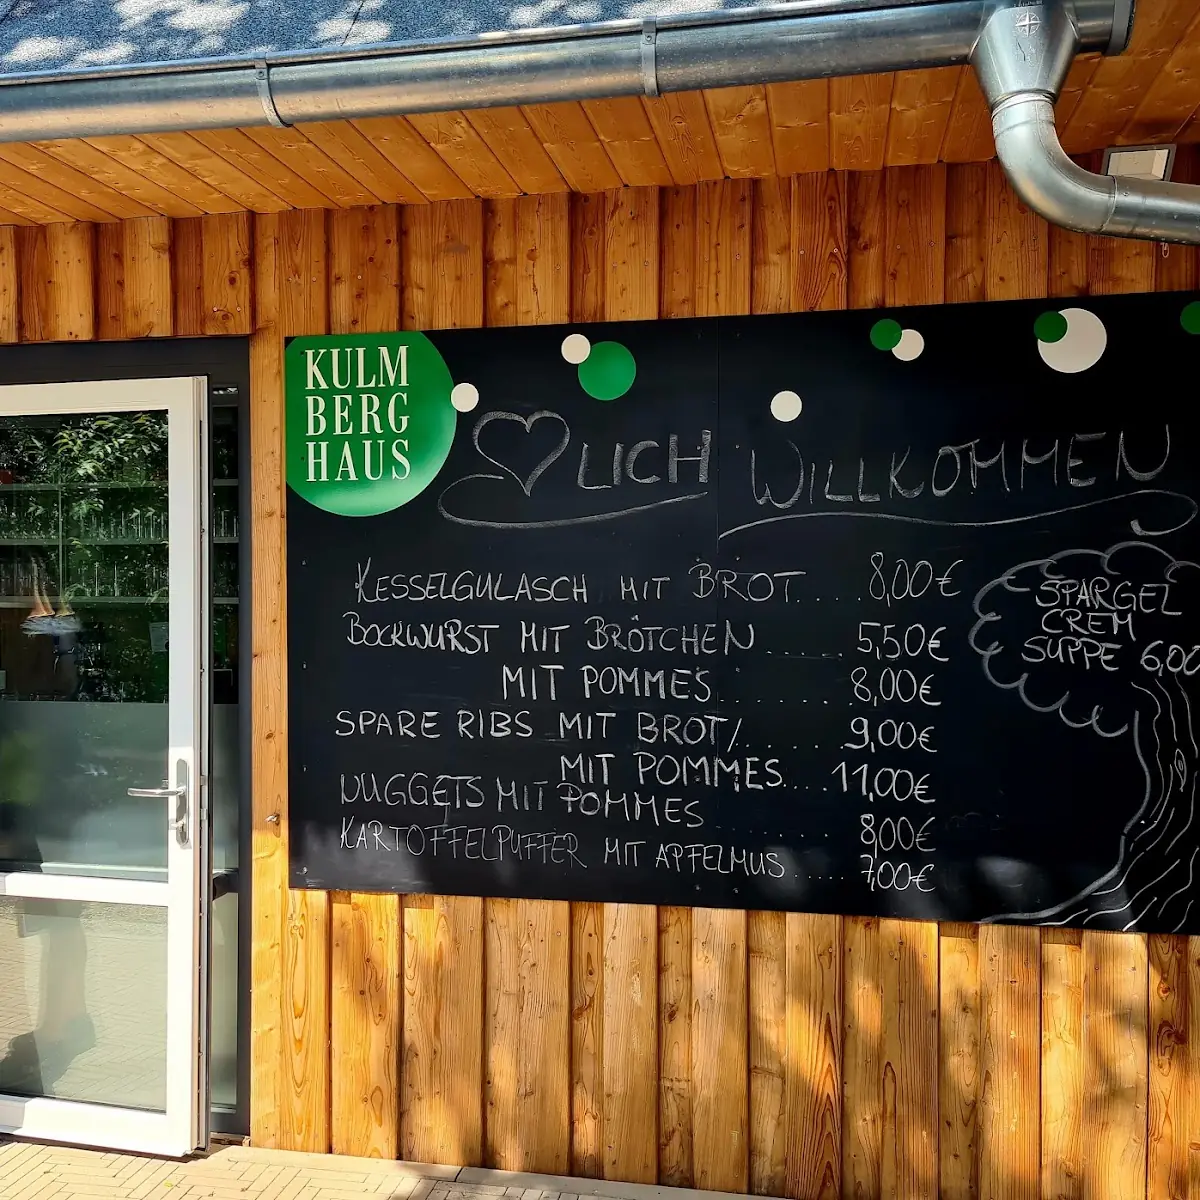 KULM
BERG
HAUS
LICH WILLKOMMEN
KESSELGULASCH MIT BROT.....8,00€
BOCKWURST MIT BRÖTCHEN......5,50€
MIT POMMES.........8,00€
SPARE RIBS MIT BROT/.......9,00€
MIT POMMES....11,00€
NUGGETS MIT POMMES.........8,00€
KARTOFFELPUFFER MIT APFELMUS.....7,00€
SPARGEL
CREM
SUPPE 6,00